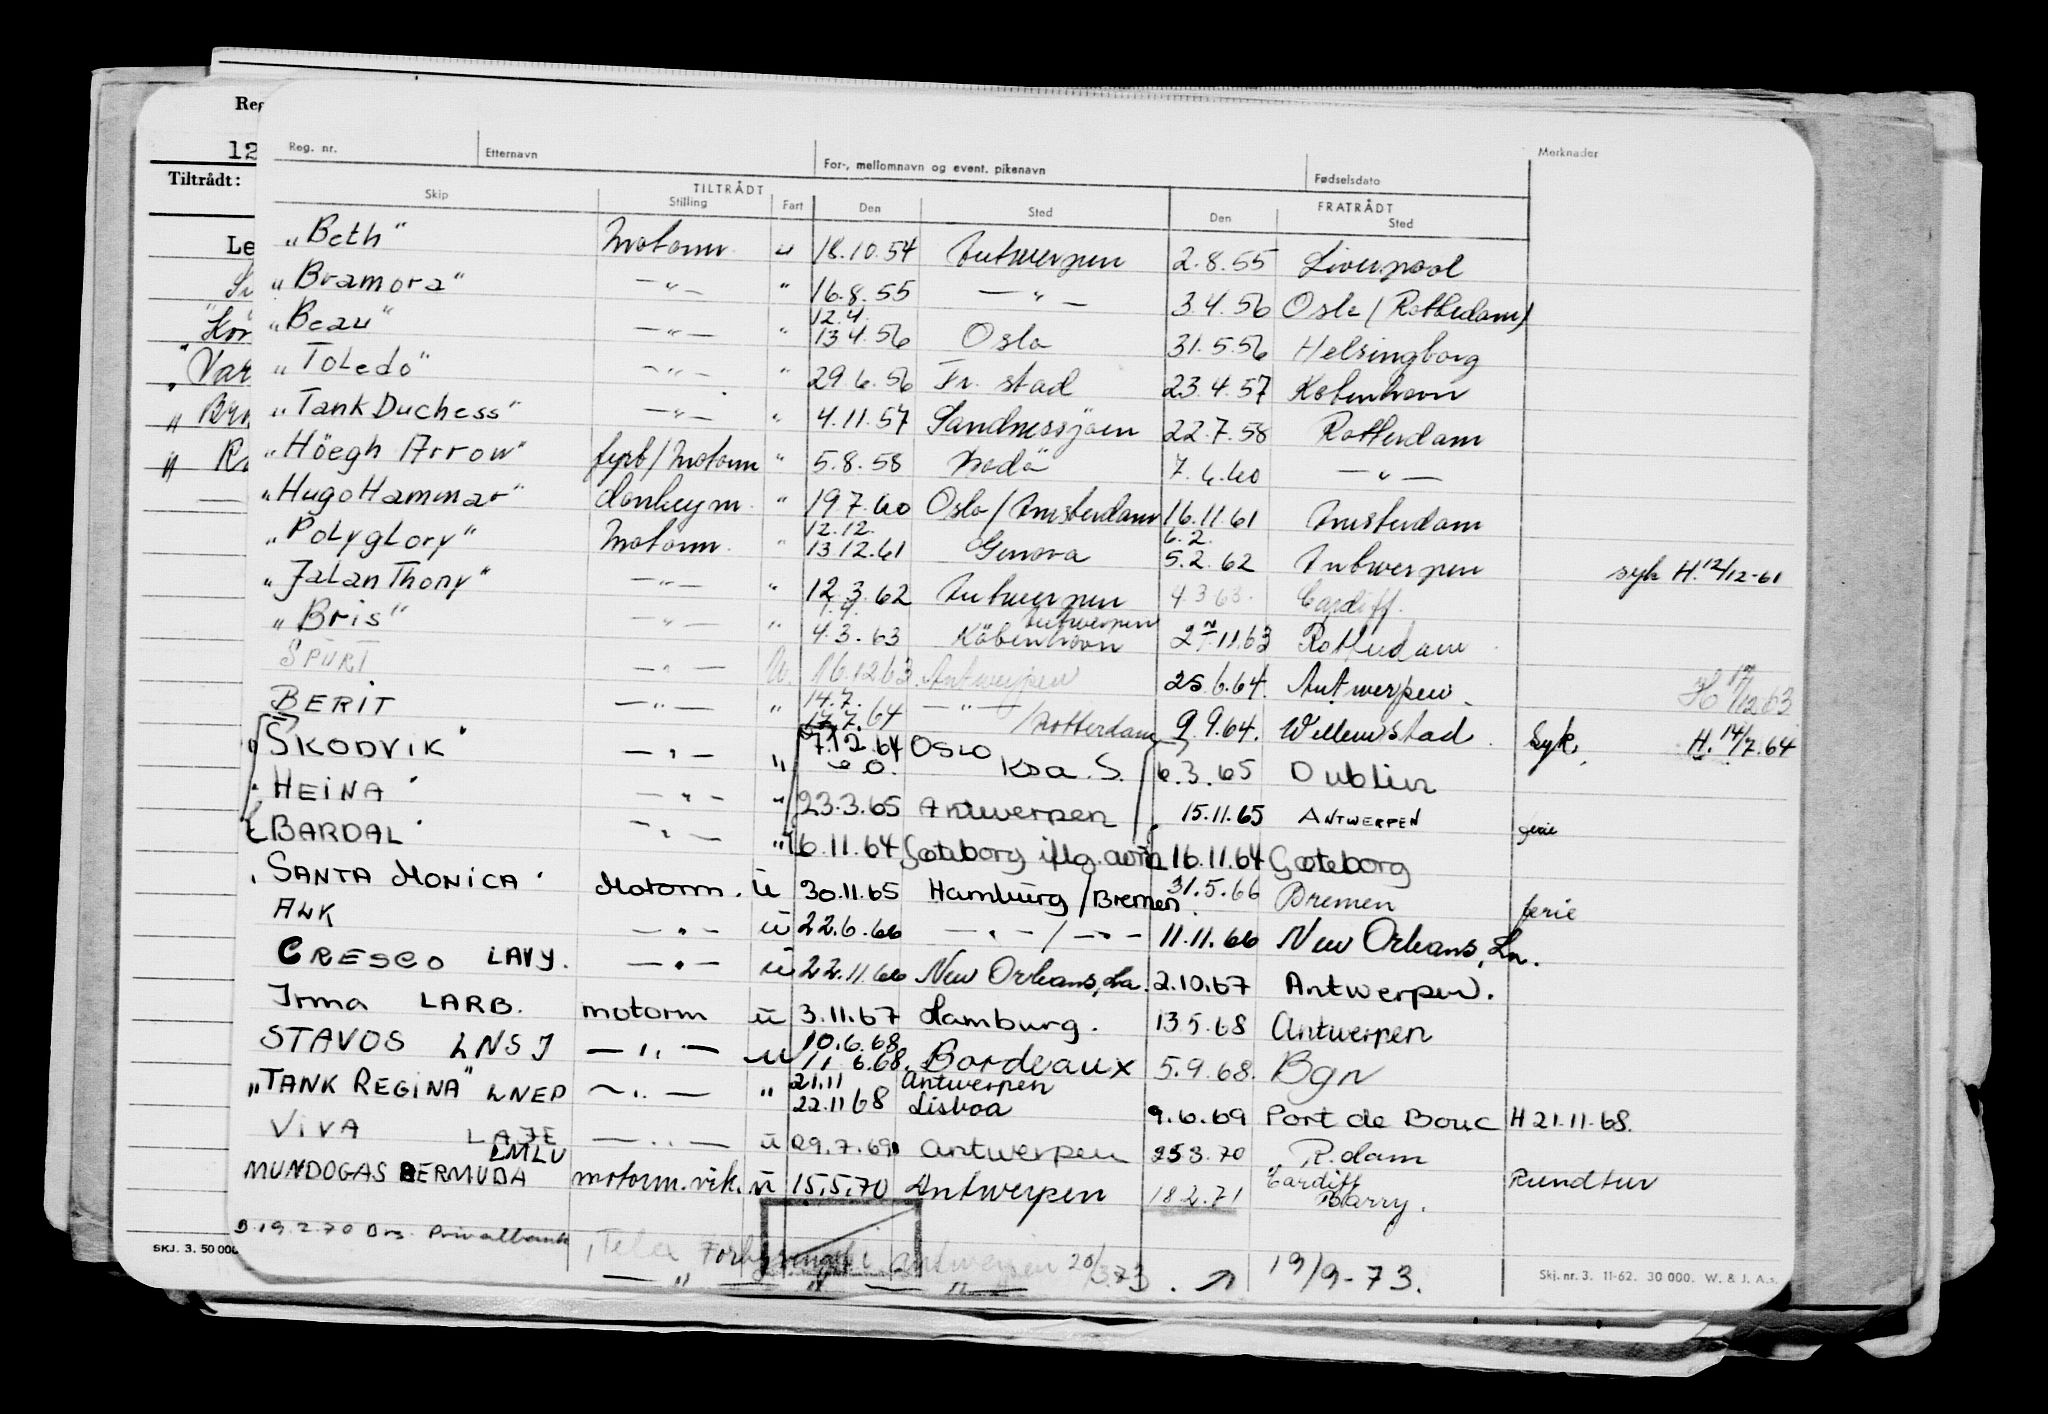 Reg
12
Tiltrådt:
Le
Var
Reg. nr. Etternavn For-, mellomnavn og event. pikenavn Fødselsdato Merknader
TILTRÅDT FRATRÅDT
Skip Stilling Fart Den Sted Den Sted
„Beth" Motorm. u 18.10.54 Antwerpen 2.8.55 Liverpool
„Bramora" —„— " 16.8.55 —„— 3.4.56 Oslo (Rotterdam)
12.4.
„Beau" —„— " 13.4.56 Oslo 31.5.56 Helsingborg
„Toledo" —„— " 29.6.56 Fr. stad 23.4.57 København
„Tank Duchess" —„— " 4.11.57 Sandnessjøen 22.7.58 Rotterdam
„Höegh Arrow" fyrb/Motorm " 5.8.58 Bodö 7.6.60 —„—
„Hugo Hammar" donkeym. " 19.7.60 Oslo/Amsterdam 16.11.61 Amsterdam
12.12. 6.2.
„Polyglory" Motorm. " 13.12.61 Genova 5.2.62 Antwerpen syk H. 12/12-61
„Jalan Thony" —„— " 12.3.62 Antwerpen 4.3.63. Cardiff.
Antwerpen
„Bris" —„— " 4.3.63 København 2.11.63 Rotterdam
SPURT —„— u. 16.12.63. Antwerpen 25.6.64. Antwerpen. H 17/12 63
14.7.
BERIT —„— " 17.7.64 —„— /Rotterdam 9.9.64. Willemstad. Syk. H. 14/7.64
SKODVIK" —„— " 7.12.64 OSLO Ksa. S. 6.3.65 Dublin
"HEINA" —„— " 23.3.65 Antwerpen 15.11.65 ANTWERPEN ferie
BARDAL" —„— " 16.11.64 Goteborg iflg. 16.11.64 Goteborg
"SANTA MONICA" Motorm. ü 30.11.65 Hamburg/Bremen. 31.5.66 Bremen ferie
ALK —„— ü 22.6.66 —„— / —„— 11.11.66 New Orleans, La.
CRESCO LAVY. —„— ü 22.11.66 New Orleans, La. 2.10.67 Antwerpen.
Irma LARB. motorm ü 3.11.67 Hamburg. 13.5.68 Antwerpen
10.6.68
STAVOS LNSJ —„— u 11.6.68. Bordeaux 5.9.68. Bgn
21.11 Antwerpen
„TANK REGINA" LNEP —„— " 22.11 68 Lisboa 9.6.69 Port de Bouc H 21.11.68.
VIVA LAJE —„— ü 29.7.69 Antwerpen 25 3.70 R.dam
LMLU Cardiff
MUNDOGAS BERMUDA motorm. vik. ü 15.5.70 Antwerpen 18.2.71 Barry. Rundtur
D. 19.2.70 Brs. Privatbank Antwerpen 20/3.73
—„— „ —„— 19/9-73.
SKJ. 3. 50 000 Skj. nr. 3. 11-62. 30 000. W. & J. A.s.